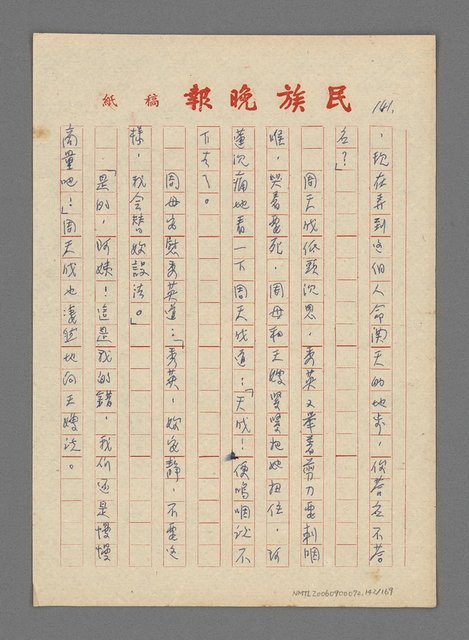 民族晚報 稿紙
141.
，現在弄到這個人命關天的地步，你答名不答
名？」
周天成低頭沉思，秀英又舉着剪刀要刺咽
喉，哭着要死，周母和王嫂緊緊把她扭住，阿
蓮沉痛地看一下周天成道：「天成！便嗚咽說不
下去了。
周母安慰秀英道：「秀英，妳安靜，不要這
樣，我会替妳設法。」
「是的，阿姨！這是我的錯，我們还是慢慢
商量吧！」周天成也淒然地向王嫂說。
NMTL20060900072.142/169